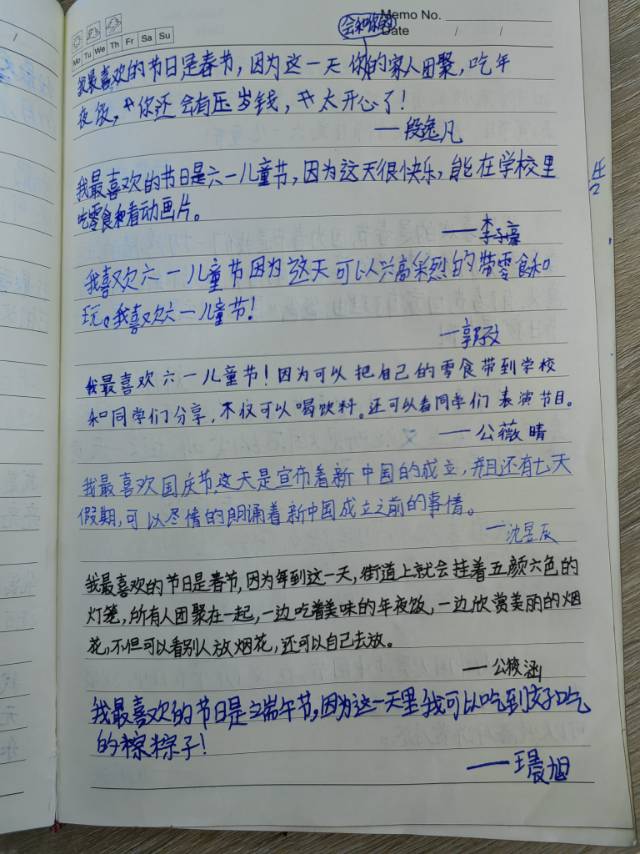 Memo No.
Mo Tu We Th Fr Sa Su
Date / /
会和你的
我最喜欢的节日是春节,因为这一天你的家人团聚,吃年
夜饭,你还会有压岁钱,太开心了!
——段逸凡
我最喜欢的节日是六一儿童节,因为这天很快乐,能在学校里
吃零食和看动画片。
——李子
我喜欢六一儿童节因为这天可以兴高采烈的带零食和
玩。我喜欢六一儿童节!
—郭
我最喜欢六一儿童节!因为可以把自己的零食带到学校
和同学们分享,不仅可以喝饮料。还可以看同学们表演节目。
——公薇晴
我最喜欢国庆节,这天是宣布着新中国的成立,并且还有七天
假期,可以尽情的朗诵着新中国成立之前的事情。
—沈昱辰
我最喜欢的节日是春节,因为每到这一天,街道上就会挂着五颜六色的
灯笼,所有人团聚在一起,一边吃着美味的年夜饭,一边欣赏美丽的烟
花,不但可以看别人放烟花,还可以自己去放。
——公 涵
我最喜欢的节日是端午节,因为这一天里我可以吃到好吃
的粽子!
——王晨旭